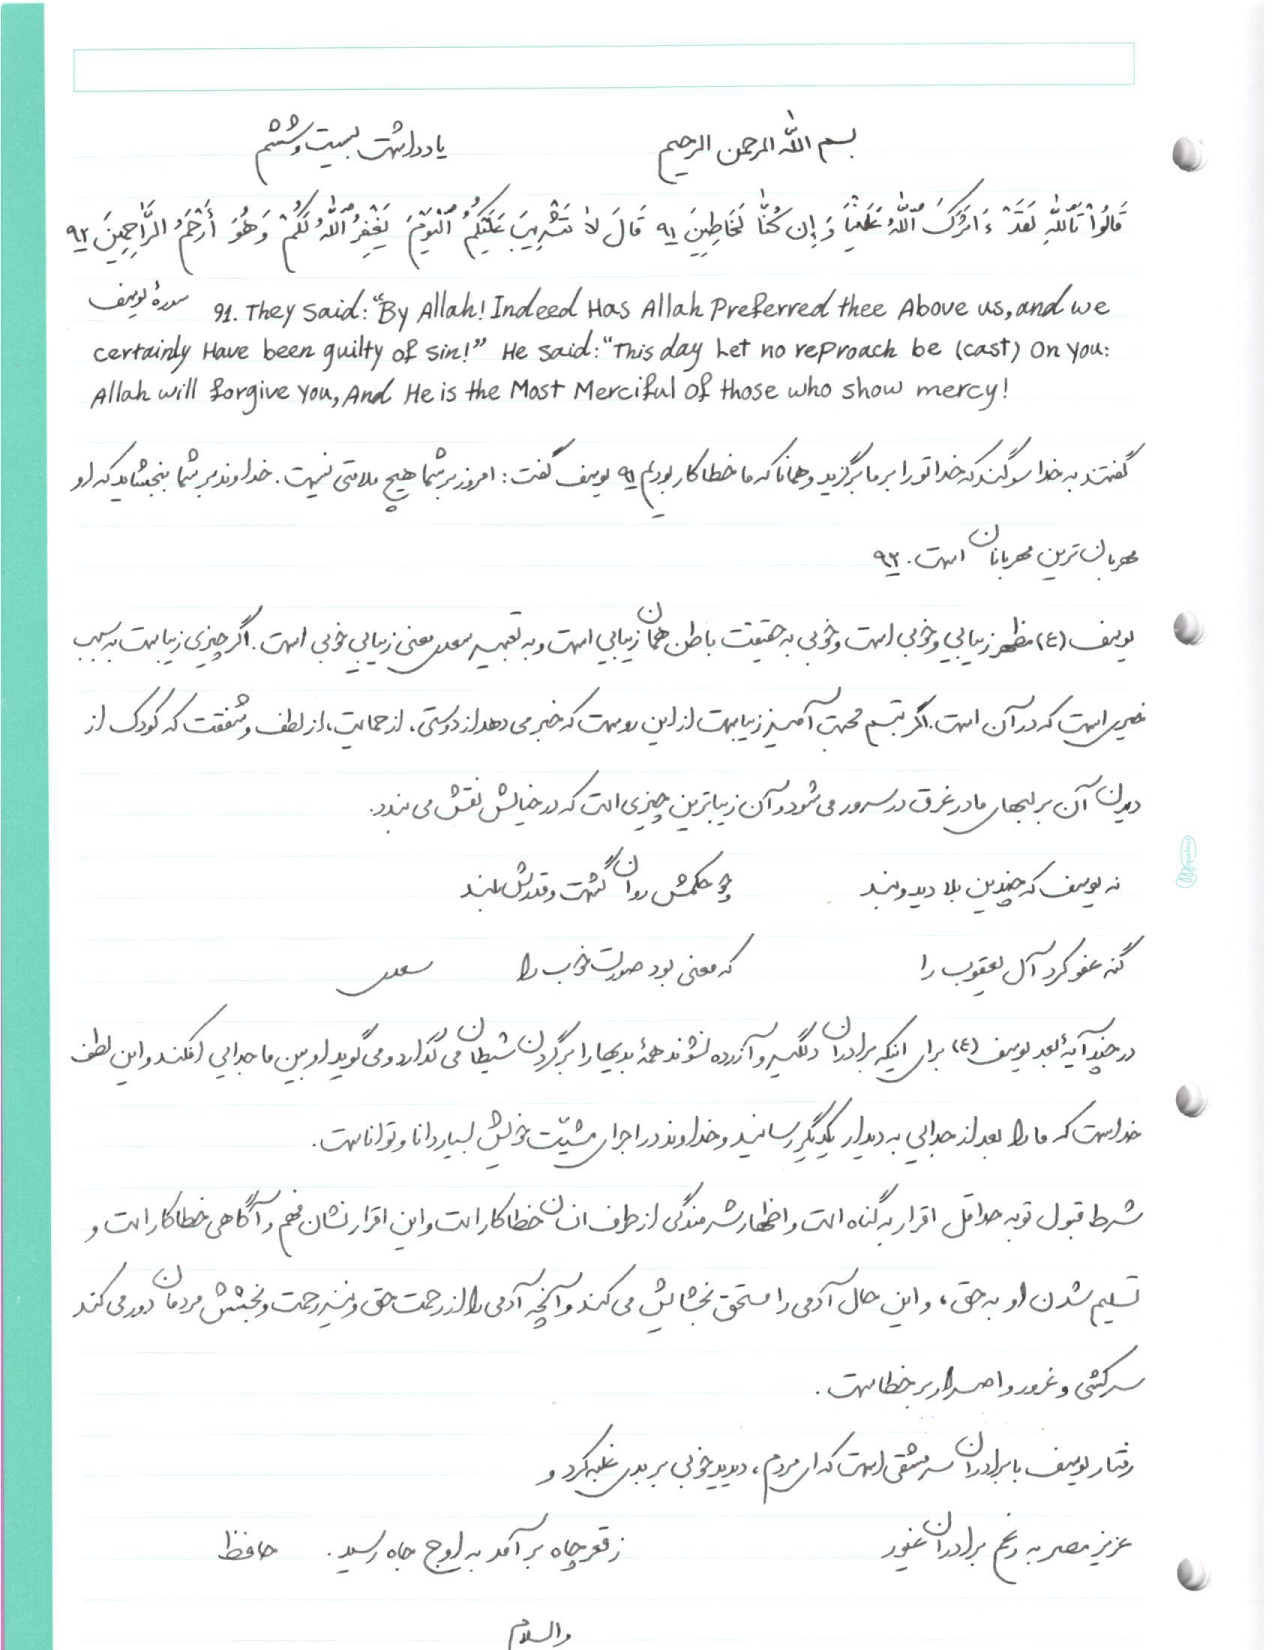 بسم الله الرحمن الرحیم یادداشت بیست و ششم
قَالُوا۟ تَٱللَّهِ لَقَدْ ءَاثَرَكَ ٱللَّهُ عَلَيْنَا وَ إِن كُنَّا لَخَاطِئِينَ ۹۱ قَالَ لَا تَثْرِيبَ عَلَيْكُمُ ٱلْيَوْمَ يَغْفِرُ ٱللَّهُ لَكُمْ وَ هُوَ أَرْحَمُ الرَّاحِمِينَ ۹۲
سورهٔ یوسف
91. They said: "By Allah! Indeed Has Allah Preferred thee Above us, and we
certainly Have been guilty of sin!" He said: "This day Let no reproach be (cast) On you:
Allah will forgive you, And He is the Most Merciful of those who show mercy!
گفتند به خدا سوگند که خدا تو را بر ما برگزید و همانا که ما خطاکار بودیم ۹۱ یوسف گفت: امروز بر شما هیچ ملامتی نیست. خداوند بر شما ببخشاید که او
مهربان‌ترین مهربانان است. ۹۲
یوسف (ع) مظهر زیبایی و خوبی است و خوبی به حقیقت باطن همان زیبایی است و به تعبیر سعدی معنی زیبایی خوبی است. اگر چیزی زیباست به سبب
خیری است که در آن است. اگر تبسم محبت آمیز زیباست از این روست که خبر می دهد از دوستی، از حمایت، از لطف و شفقت که کودک از
دیدن آن بر لبهای مادر غرق در سرور می شود و آن زیباترین چیزی است که در خیالش نقش می بندد.
نه یوسف که چندین بلا دید و بند چو حکمش روان گشت و قدرش بلند
گنه عفو کرد آل یعقوب را که معنی بود صورت خوب را سعدی
در چند آیهٔ بعد یوسف (ع) برای اینکه برادران دلگیر و آزرده نشوند همهٔ بدیها را بر گردن شیطان می گذارد و می گوید او بین ما جدایی افکند و این لطف
خداست که ما را بعد از جدایی به دیدار یکدیگر رسانید و خداوند در اجرای مشیّت خویش بسیار دانا و تواناست.
شرط قبول توبه حداقل اقرار به گناه است و اظهار شرمندگی از طرف انسان خطاکار است و این اقرار نشان فهم و آگاهی خطاکار است و
تسلیم شدن او به حق، و این حال آدمی را مستحق بخشایش می کند و آنچه آدمی را از رحمت حق و نیز رحمت و بخشش مردمان دور می کند
سرکشی و غرور و اصرار بر خطاست.
رفتار یوسف با برادران سرمشقی است که ای مردم، دیدید خوبی بر بدی غلبه کرد و
عزیز مصر به رغم برادران غیور ز قعر چاه بر آمد به اوج جاه رسید. حافظ
والسلام